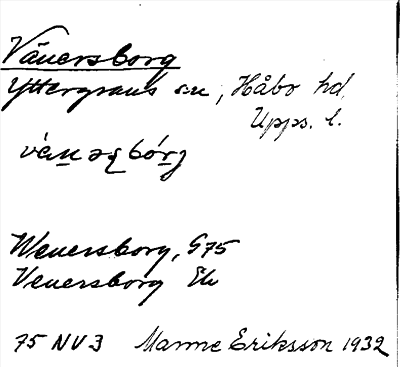 Vänersborg
Yttergrans sn, Håbo hd.
Upps. l.
Wenersborg, G75
Venersborg Ek
75 NV3 Manne Eriksson 1932